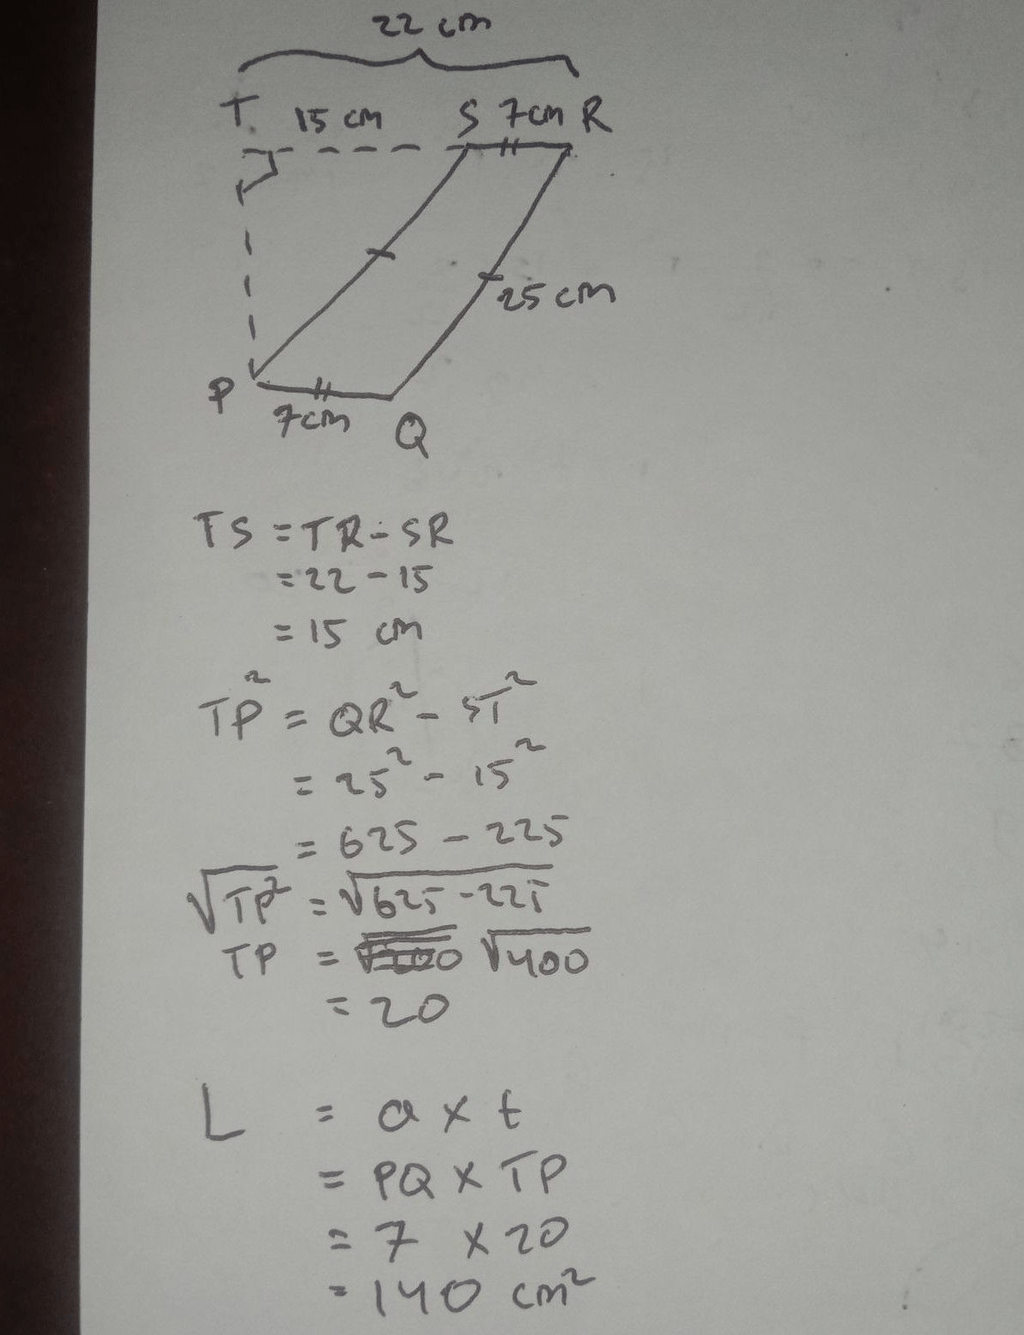 22 cm
T 15 cm S 7cm R
25 cm
P 7cm Q
TS = TR - SR
= 22 - 15
= 15 cm
TP² = QR² - ST²
= 25² - 15²
= 625 - 225
√TP² = √625 - 225
TP = √400
= 20
L = a × t
= PQ × TP
= 7 × 20
= 140 cm²